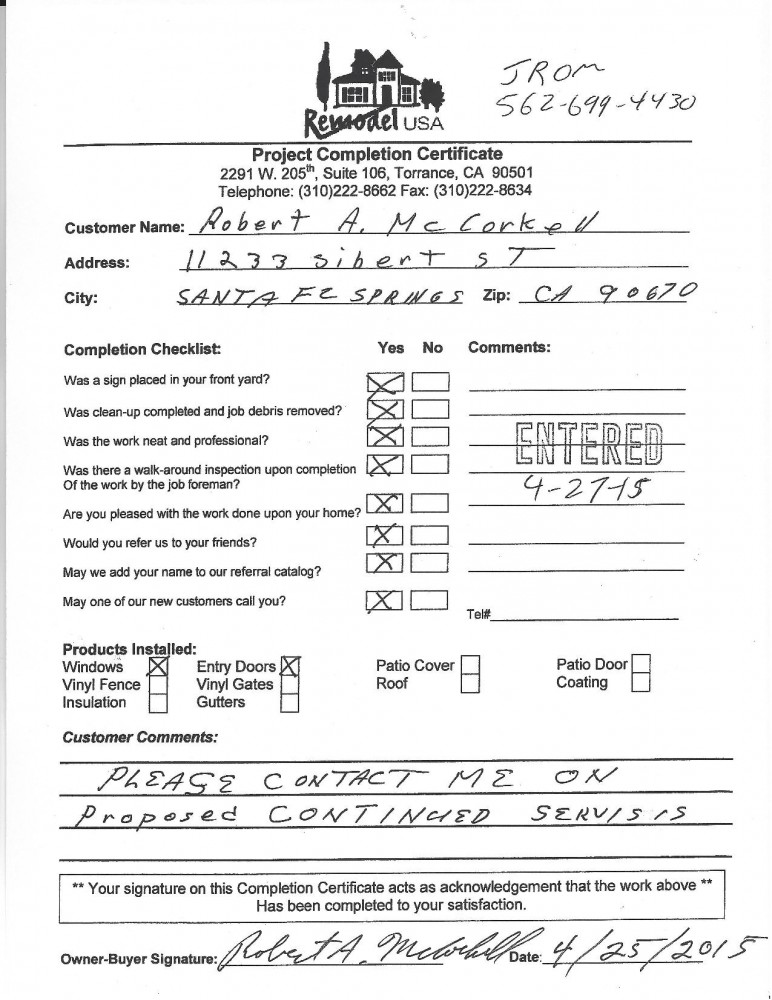 JROM
562-699-4430
Remodel USA
Project Completion Certificate
2291 W. 205th, Suite 106, Torrance, CA 90501
Telephone: (310)222-8662 Fax: (310)222-8634
Customer Name: Robert A. McCorkell
Address: 11233 sibert ST
City: SANTA FE SPRINGS Zip: CA 90670
Completion Checklist: Yes No Comments:
Was a sign placed in your front yard?
Was clean-up completed and job debris removed?
Was the work neat and professional?
ENTERED
Was there a walk-around inspection upon completion
Of the work by the job foreman?
4-27-15
Are you pleased with the work done upon your home?
Would you refer us to your friends?
May we add your name to our referral catalog?
May one of our new customers call you?
Tel#
Products Installed:
Windows Entry Doors Patio Cover Patio Door
Vinyl Fence Vinyl Gates Roof Coating
Insulation Gutters
Customer Comments:
PLEASE CONTACT ME ON
Proposed CONTINUED SERVISIS
** Your signature on this Completion Certificate acts as acknowledgement that the work above **
Has been completed to your satisfaction.
Owner-Buyer Signature: Robert A. McCorkell Date: 4/25/2015